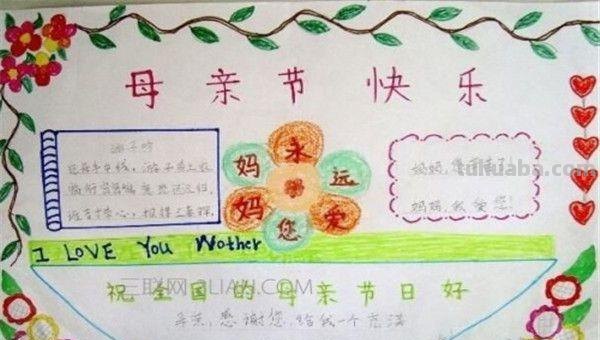 母亲节快乐
游子吟
慈母手中线，游子身上衣
临行密密缝 意恐迟迟归，
谁言寸草心，报得三春晖
妈妈永远爱您
妈妈，您辛苦了！
妈妈，我爱您！
tukuaba.com
I LOVE You Wother
三联网 3LIAN.COM
祝全国的母亲节日好
母亲，感谢您，给我一个充满